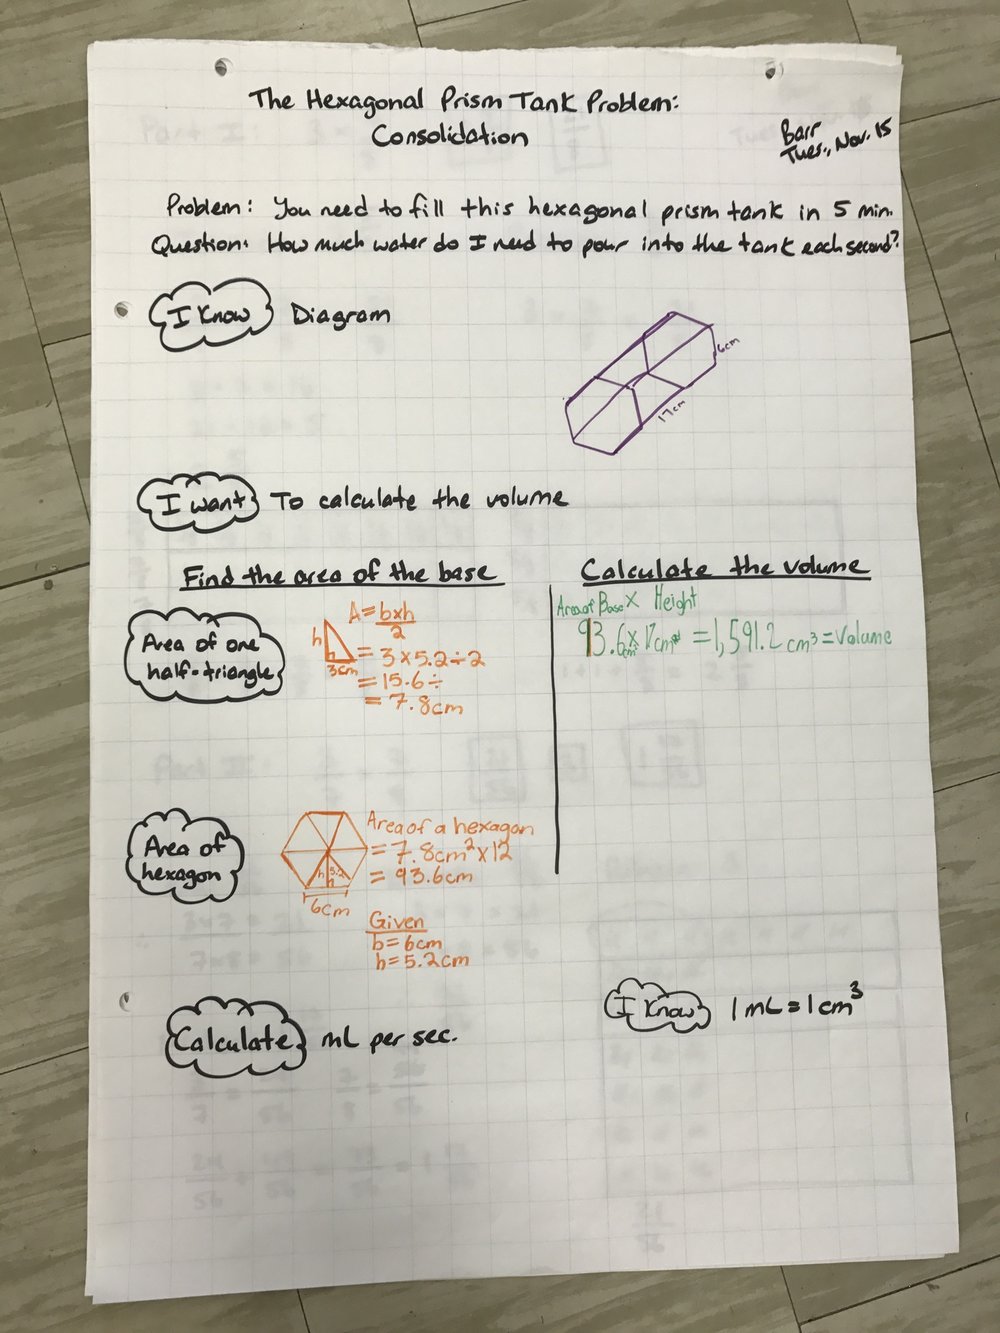 The Hexagonal Prism Tank Problem:
Consolidation
Barr
Tues., Nov. 15
Problem: You need to fill this hexagonal prism tank in 5 min.
Question: How much water do I need to pour into the tank each second?
I Know Diagram
6cm
17cm
I want To calculate the volume
Find the area of the base
Area of one
half-triangle
h
3cm
A = bxh
2
= 3 x 5.2 ÷ 2
= 15.6 ÷
= 7.8cm
Calculate the volume
Area of Base x Height
93.6 cm x 17cm = 1,591.2 cm³ = Volume
Area of
hexagon
h 5.2
6cm
Area of a hexagon
= 7.8cm² x 12
= 93.6cm
Given
b = 6cm
h = 5.2cm
Calculate mL per sec.
I Know 1 mL = 1 cm³